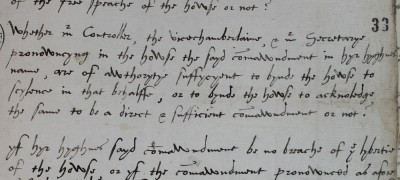 of the free speache of the howse or not?
33
Whether mr Controller, the vicechamberlaine, & mr Secretarye
pronowncyng in the howse the sayd comawndment in hyr hyghnes
name, are of awthorytye suffycyent to bynde the howse to
scylence in that behalffe, or to bynde the howse to acknoledge
the same to be a direct & sufficient comawndment or not?
yf hyr hyghnes sayd comawndment be no breache of ye lybertie
of the howse, or yf the comawndment pronownced as afore